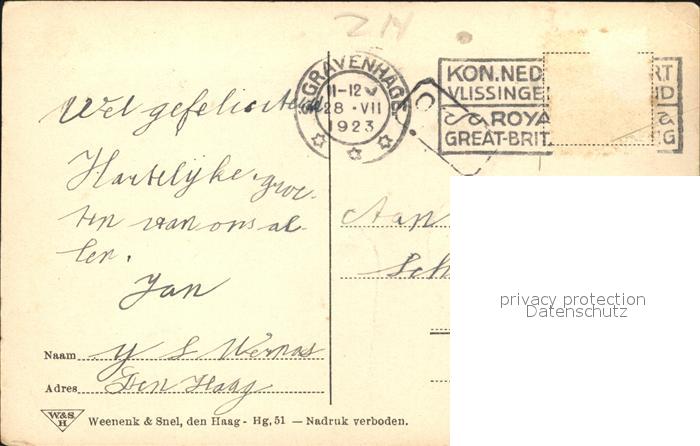 Z N
'S GRAVENHAGE
11-12 V
28 · VII
1923
KON.NED. RT
VLISSINGE ND
ROYA
GREAT-BRIT. G
Wel gefeliciteerd
Hartelijke groe-
ten van ons al-
len.
Jan
Aan
Sch
privacy protection
Datenschutz
Naam
Adres Den Haag
W&S
H
Weenenk & Snel, den Haag - Hg, 51 — Nadruk verboden.